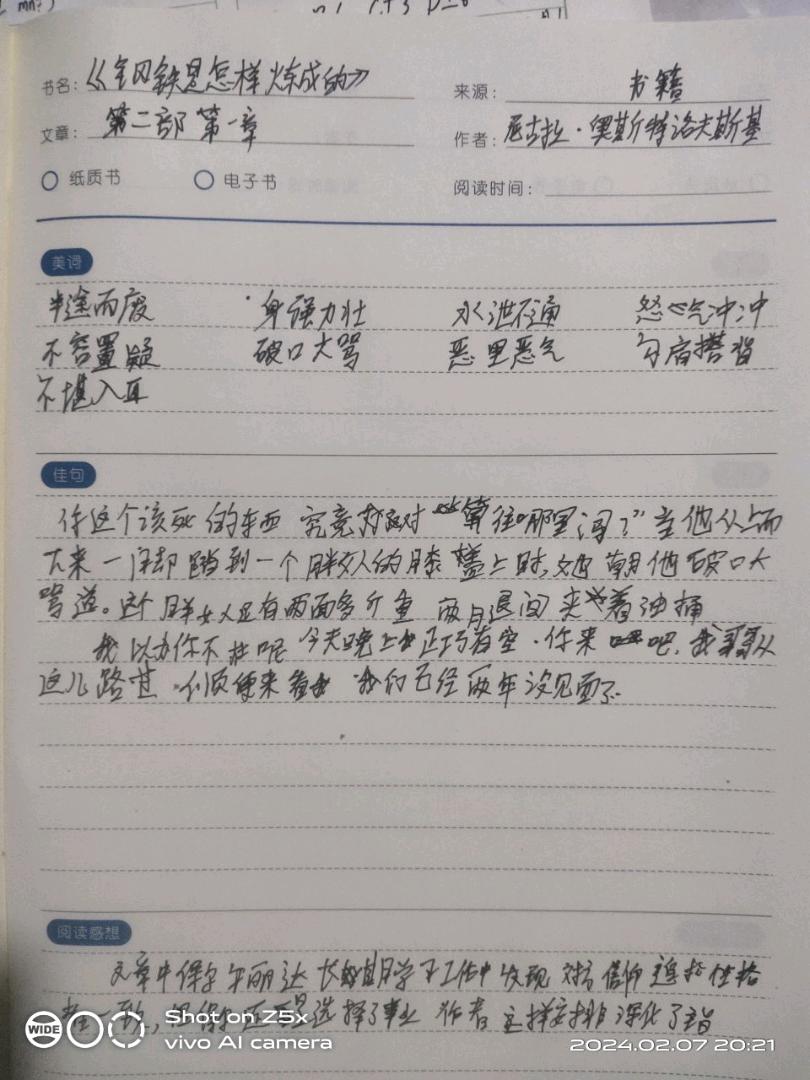 书名：《钢铁是怎样炼成的》 来源： 书籍
文章： 第二部 第一章 作者： 尼古拉·奥斯特洛夫斯基
纸质书 电子书 阅读时间：
美词
半途而废 身强力壮 水泄不通 怒气冲冲
不容置疑 破口大骂 恶里恶气 勾肩搭背
不堪入耳
佳句
你这个该死的东西 究竟 往哪里闯？”当他从上面
下来一脚却踏到一个胖女人的膝盖上时,她朝他破口大
骂道。这个胖女人足有两百多斤重 两月退间夹着油桶
我以为你不在呢 今天晚上我正巧有空.你来吧.我哥哥从
这儿路过.顺便来看我 我们已经两年没见面了.
阅读感想
文章中保尔与丽达长期学习工作中发现 对方信仰 追求 性格
一致, 但保尔还是选择了事业 作者这样安排深化了主旨
WIDE
Shot on Z5x
vivo AI camera
2024.02.07 20:21